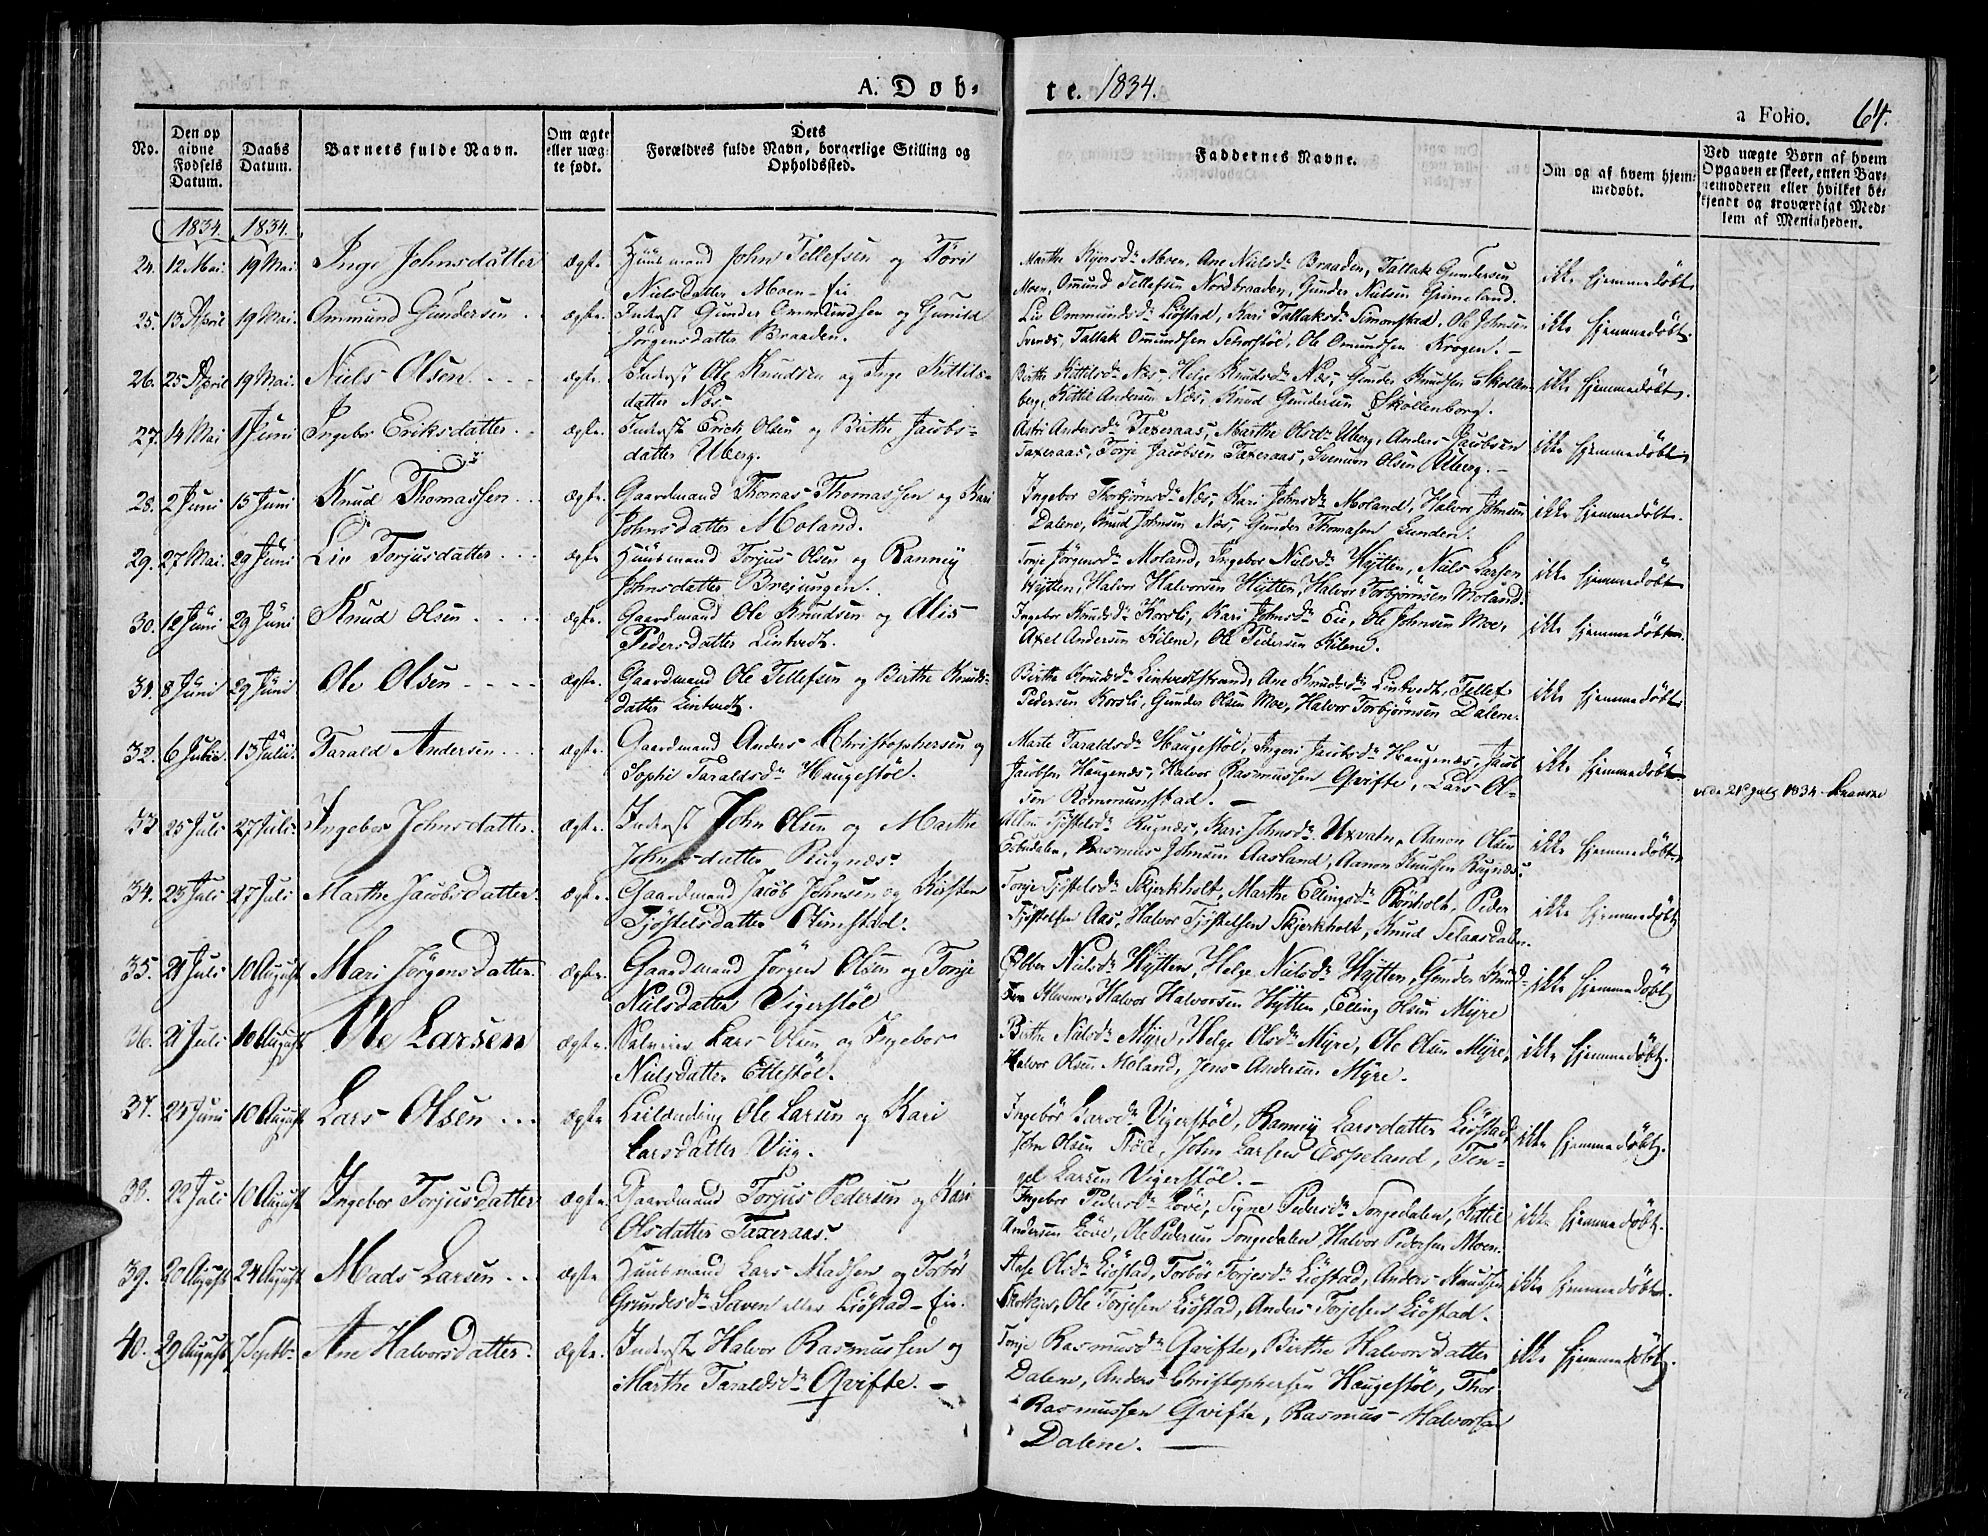 A. Døb-
te. 1834.
a Folio. 64.
No.
Den op
givne
Fødsels
Datum.
Daabs
Datum.
Barnets fulde Navn.
Om ægte
eller uæg-
te født.
Dets
Forældres fulde Navn, borgerlige Stilling og
Opholdssted.
Faddernes Navne.
Om og af hvem hjem-
medøbt.
Ved uægte Børn af hvem
Opgaven er skeet, enten Bar-
nemoderen eller hvilket be-
kjendt og troværdigt Med-
lem af Menigheden.
1834. 1834.
24. 12 Mai. 19 Mai. Inge Johnsdatter ægte. Huusmand John Tellefsen og Tori
Nielsdatter Moen-Eie
Marthe Moen, Ane Nielsdr Braaden, Tallak Gundersen
Moen, Omund Tellefsen Nordbraaden, Gunder Nielsen Grimeland.
ikke hjemmedøbt.
25. 13 Aprile 19 Mai. Ommund Gundersen ægte. Inderst Gunder Ommundsen og Gunild
Jørgensdatter Braaden.
Liv Ommundsdr Liøstad, Kari Tallaksdr Simonstad, Ole Johnsen
Svenes, Tallak Omundsen Selvestøl, Ole Omundsen Krogen. –
ikke hjemmedøbt.
26. 25 Aprile 19 Mai. Niels Olsen ægte. Inderst Ole Knudsen og Inge Kittils-
datter Næs.
Birthe Kittelsdr Næs, Helge Knudsdr Næs, Gunder Knudsen Skollen-
berg, Kittil Andersen Næs, Knud Gundersen Skollenborg.
ikke hjemmedøbt.
27. 14 Mai 1 Juni Ingebor Eriksdatter ægte. Inderst Erich Olsen og Birthe Jacobs-
datter Uberg.
Astri Andersdr Taxeraas, Marthe Olsdr Uberg, Anders Jacobsen
Taxeraas, Torje Jacobsen Taxeraas, Svenum Olsen Uberg. –
ikke hjemmedøbt.
28. 2 Juni 15 Juni Knud Thomassen ægte. Gaardmand Thomas Thomassen og Kari
Johnsdatter Moland.
Ingebor Thorbjørnsdr Næs, Kari Johnsdr Moland, Halvor Johnsen
Dalene, Knud Johnsen Næs, Gunder Thomasen Lunden.
ikke hjemmedøbt.
29. 27 Mai. 29 Juni Liv Torjusdatter ægte Huusmand Torjus Olsen og Ranney
Johnsdatter Breiungen.
Torje Jørgensdr Moland, Ingebor Nielsdr Hytten, Niels Larsen
Hytten, Halvor Halvorsen Hytten, Halvor Torbjørnsen Moland.
ikke hjemmedøbt
30. 12 Juni 29 Juni Knud Olsen ægte. Gaardmand Ole Knudsen og Alis
Pedersdatter Lintvedt.
Ingebor Knudsdr Korsli, Kari Johnsdr Eie, Ole Johnsen Moe,
Axel Andersen Kilene, Ole Pedersen Kilene.
ikke hjemmedøbt.
31. 8 Juni 29 Juni Ole Olsen ægte. Gaardmand Ole Tellefsen og Birthe Knuds-
datter Lintvedt.
Birthe Knudsdr Lintvedtstrand, Ane Knudsdr Lintvedt, Tellef
Pedersen Korsli, Gunder Olsen Moe, Halvor Torbjørnsen Dalene.
ikke hjemmedøbt
32. 6 Julie. 13 Julii. Tarald Andersen ægte. Gaardmand Anders Christophersen og
Sophi Taraldsdr Haugestøl.
Marte Taraldsdr Haugestøl, Ingeri Jacobsdr Haugenæs, Jacob
Jacobsen Haugenæs, Halvor Rasmussen Qvifte, Lars Ol-
sen Rommunstad. –
ikke hjemmedøbt
21de July 1834.
33. 25 Juli 27 Juli. Ingebor Johnsdatter. ægte. Inderst John Olsen og Marthe
Johnsdatter Rugnæs.
Tjøstelsdr Rugnæs, Kari Johnsdr Uxvatn, Aanon Olsen
Espedalen, Rasmus Johnsen Aasland, Aanon Knutsen Rugnæs.
ikke hjemmedøbt.
34. 23 Juli 27 Juli Marthe Jacobsdatter. ægte. Gaardmand Jacob Johnsen og Kirsten
Tjøstelsdatter Rimstad.
Torje Tjøstelsdr Skjerkholt, Marthe Ellingsdr Rønholt, Peder
Tjøstelsen Aas, Halvor Tjøstelsen Skjerkholt, Knud Selaasdalen.
ikke hjemmedøbt
35. 21 Juli 10 August Mari Jørgensdatter. ægte. Gaardmand Jørgen Olsen og Torje
Nielsdatter Vigerstøl
Ebber Nielsdr Hytten, Helge Nielsdr Hytten, Gunder Knud-
sen Kleven, Halvor Halvorsen Hytten, Elling Olsen Myre
ikke hjemmedøbt
36. 21 Juli 10 August Ole Larsen ægte. Lars Olsen og Ingebor
Nielsdatter Ettestøl.
Birthe Nielsdr Myre, Helge Olsdr Myre, Ole Olsen Myre,
Halvor Olsen Moland, Jens Andersen Myre.
ikke hjemmedøbt.
37. 25 Juni 10 August Lars Olsen ægte Leilending Ole Larsen og Kari
Larsdatter Viig.
Ingebor Larsdr Vigerstøl, Ranney Larsdatter Liøstad,
John Olsen Støle, John Larsen Espeland, Ten-
gel Larsen Vigerstøl. –
ikke hjemmedøbt.
38. 22 Juli 10 August Ingebor Torjusdatter ægte. Gaardmand Torjus Pedersen og Kari
Olsdatter Taxeraas.
Ingebor Pedersdr Løve, Signe Pedersdr Songedalen, Kittil
Andersen Løve, Ole Pedersen Songedalen, Halvor Pedersen Moen.
ikke hjemmedøbt.
39. 20 August 24 August Mads Larsen ægte Huusmand Lars Madsen og Torbør
Grundesdr Seven eller Liøstad-Eie.
Aase Olsdr Liøstad, Torbør Torjesdr Liøstad, Anders Knudsen
Ole Torjesen Liøstad, Anders Torjesen Liøstad.
ikke hjemmedøbt.
40. 29 August 7 Septb. Ane Halvorsdatter. ægte. Inderst Halvor Rasmussen og
Marthe Taraldsdr Qvifte. –
Torje Rasmusdr Qvifte, Birthe Halvorsdatter
Dalene, Anders Christophersen Haugestøl, Thor
Rasmussen Qvifte, Rasmus Halvorsen
Dalene. –
ikke hjemmedøbt.